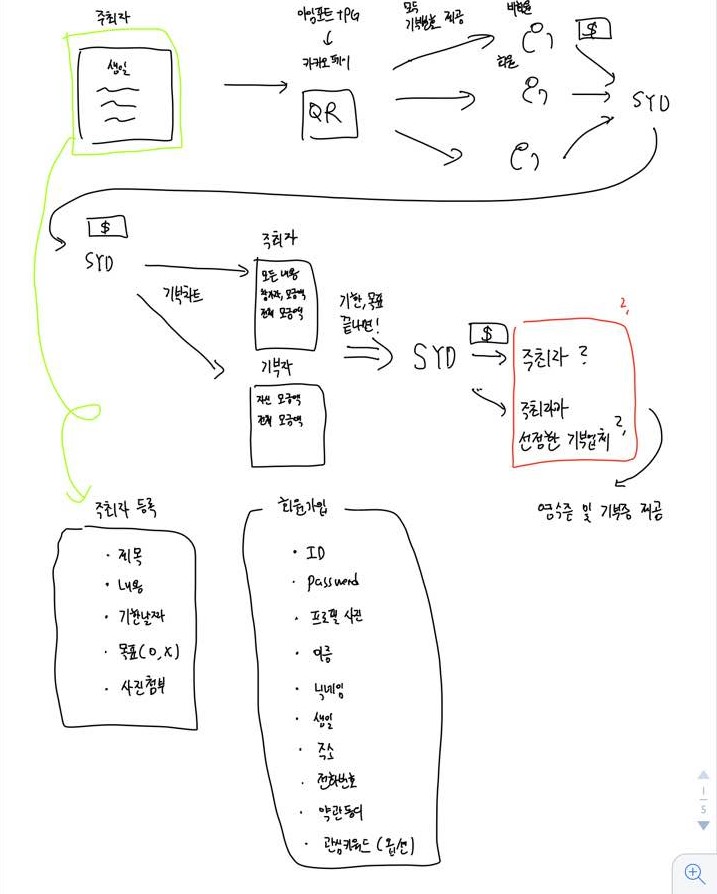 주최자
생일
아임포트 +PG
카카오페이
QR
모두
기부번호 제공
비회원
$
회원
SYD
$
SYD
기부차트
주최자
모든 내용
참가자, 모금액
전체 모금액
기부자
자신 모금액
전체 모금액
기한, 목표
끝나면!
SYD
$
?
주최자 ?
주최자가
선정한 기부업체 ?
영수증 및 기부증 제공
주최자 등록
· 제목
· 내용
· 기한날짜
· 목표(O,X)
· 사진첨부
회원가입
· ID
· Password
· 프로필 사진
· 이름
· 닉네임
· 생일
· 주소
· 전화번호
· 약관동의
· 관심키워드 (옵션)
1
5